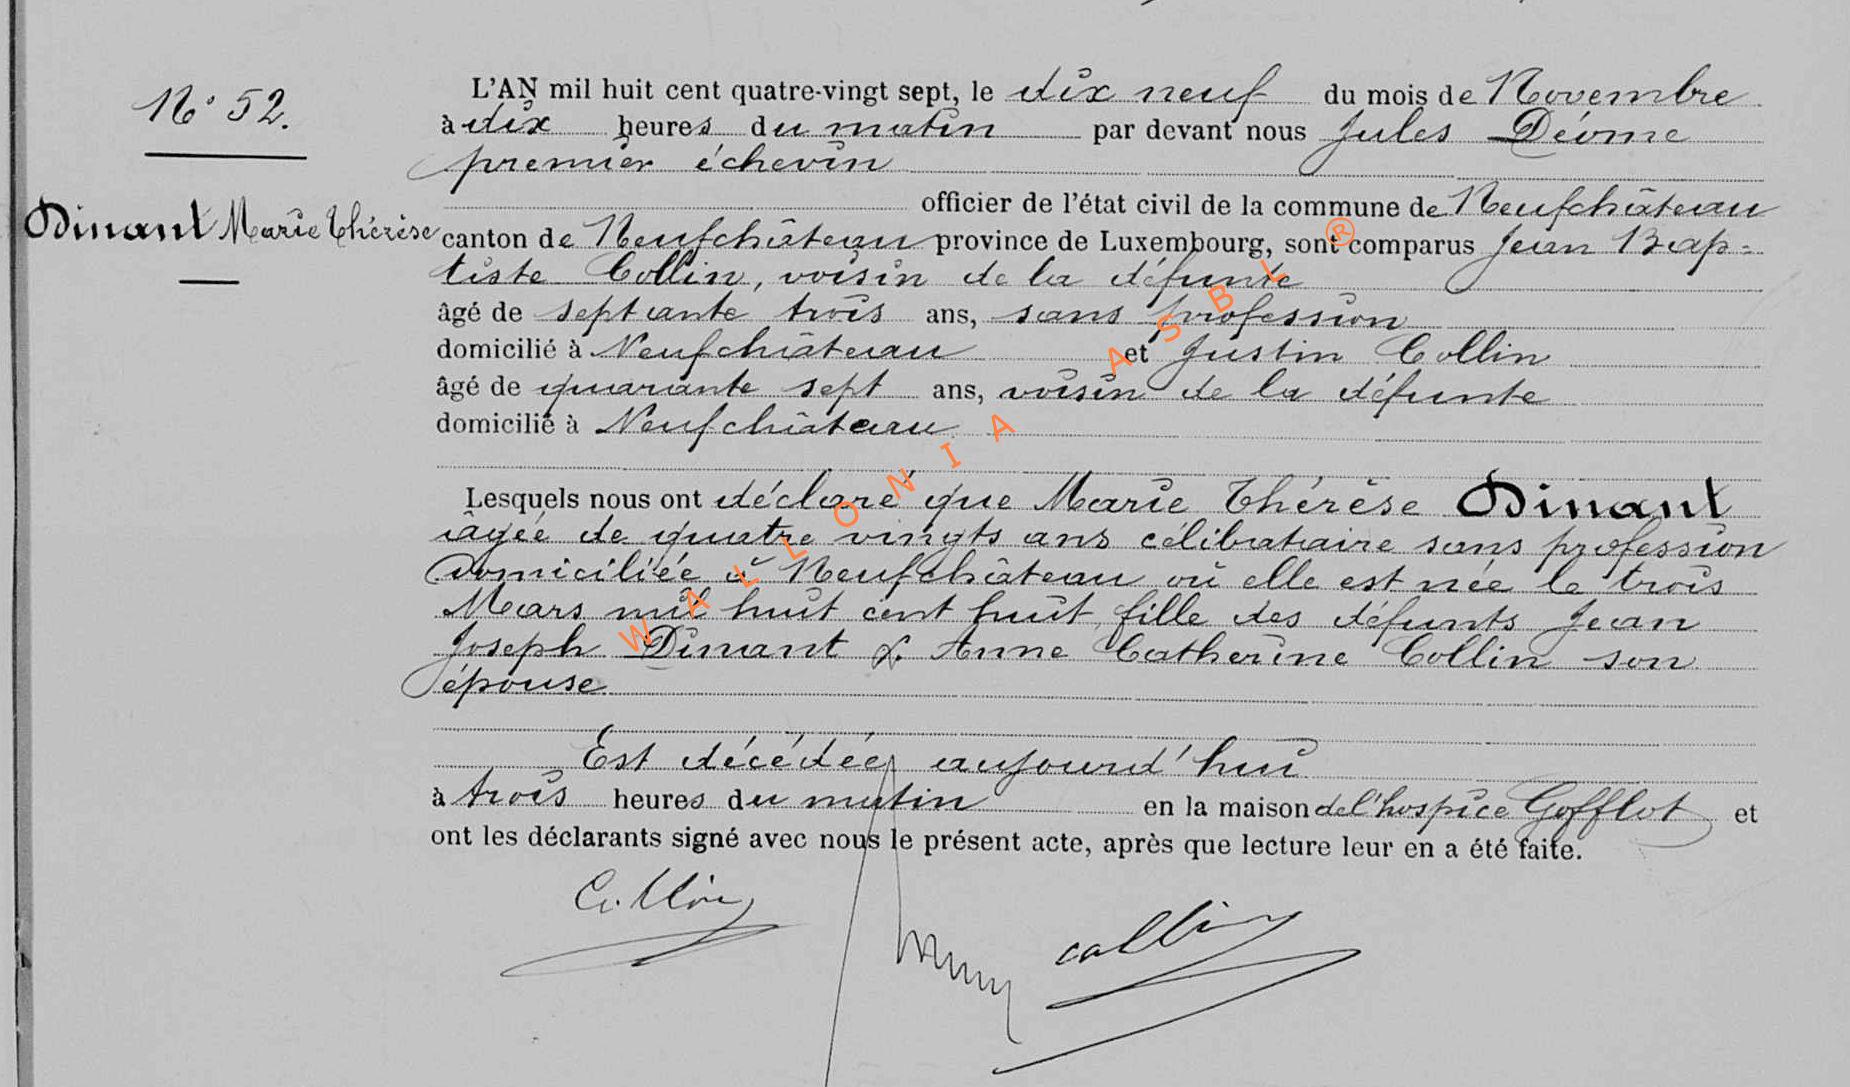 N° 52.
Dinant Marie Thérèse
L'AN mil huit cent quatre-vingt sept, le dix neuf du mois de Novembre
à dix heures du matin par devant nous Jules Déome
premier échevin
officier de l'état civil de la commune de Neufchâteau
canton de Neufchâteau province de Luxembourg, sont comparus Jean Bap=
tiste Collin, voisin de la défunte
âgé de septante trois ans, sans profession
domicilié à Neufchâteau et Justin Collin
âgé de quarante sept ans, voisin de la défunte
domicilié à Neufchâteau
Lesquels nous ont déclaré que Marie Thérèse Dinant
âgée de quatre vingts ans célibataire sans profession
domiciliée à Neufchâteau où elle est née le trois
Mars mil huit cent huit, fille des défunts Jean
Joseph Dinant & Anne Catherine Collin son
épouse.
Est décédée aujourd'hui
à trois heures du matin en la maison de l'hospice Gofflot et
ont les déclarants signé avec nous le présent acte, après que lecture leur en a été faite.
Collin
collin
WALLONIA ASBL ®